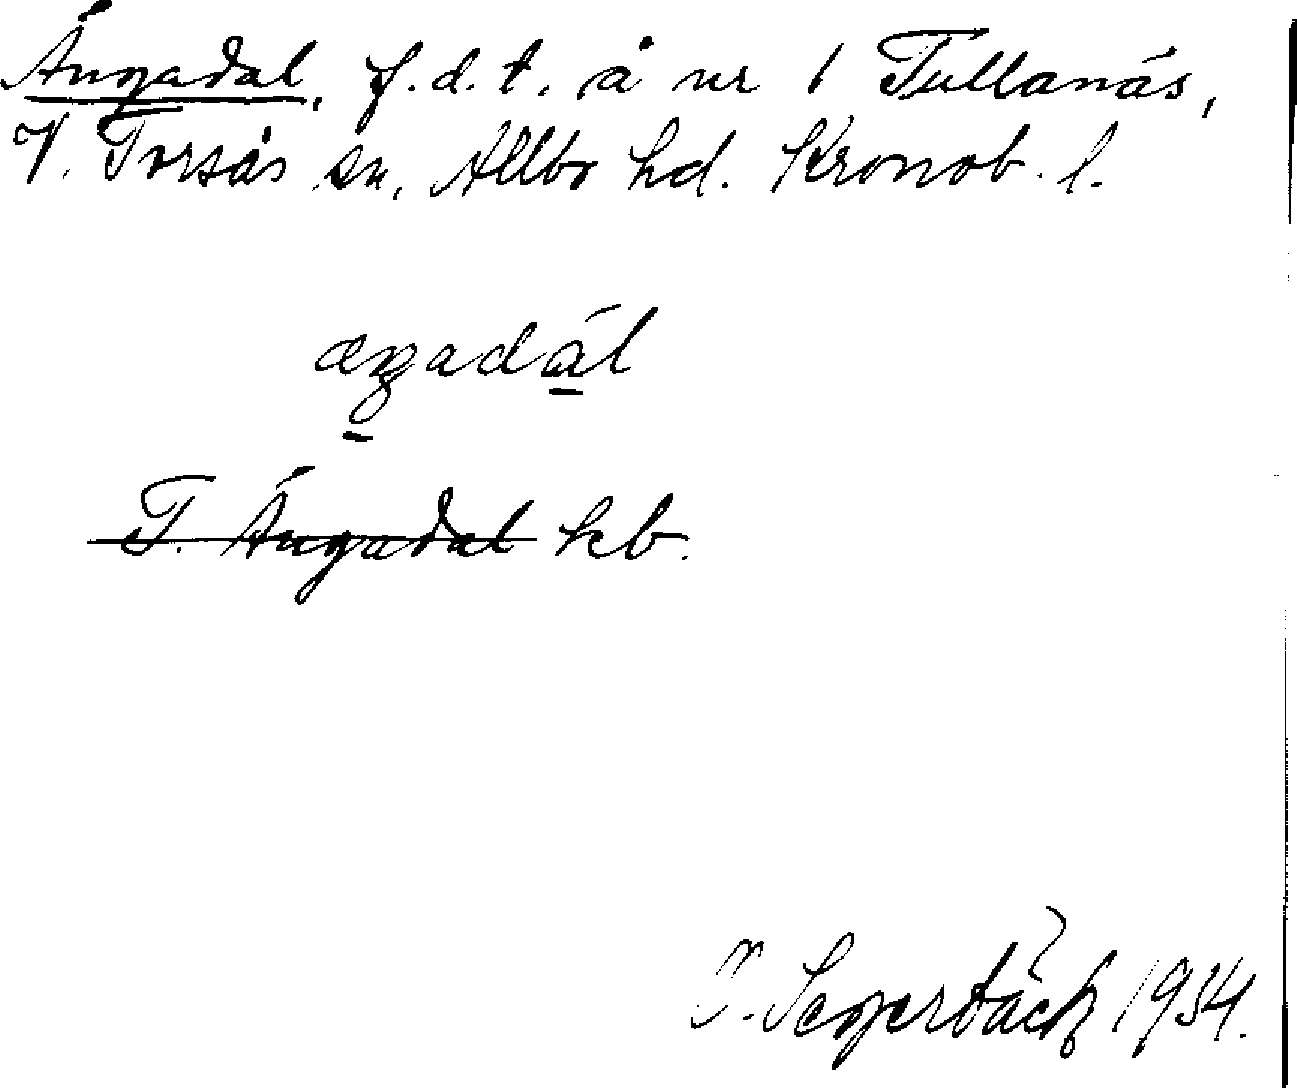 Ängadal, f.d.t. å nr 1 Tullanäs,
V. Torsås sn, Allbo hd. Kronob. l.
T. Ängadal kb.
Segerbäck 1934.